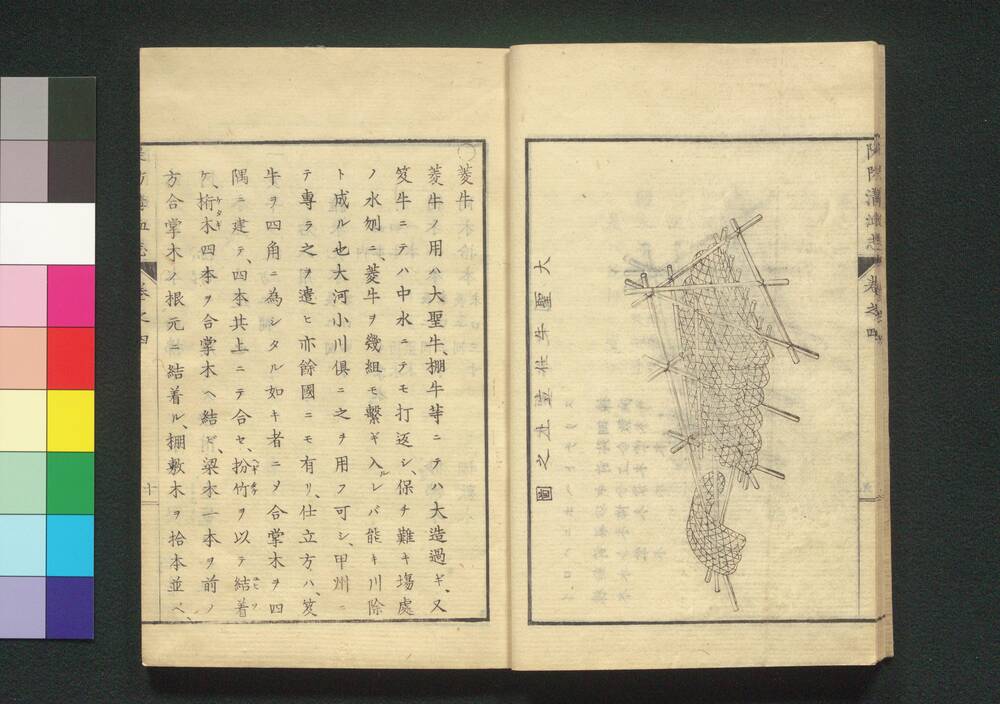 大聖牛出来之図
○菱牛
菱牛ノ用ハ大聖牛、棚牛等ニテハ大造過ギ、又
笈牛ニテハ中水ニテモ打返シ、保チ難キ塲處
ノ水刎ニ、菱牛ヲ幾組モ繋ギ入ルレバ能キ川除
ト成ル也大河小川倶ニ之ヲ用フ可シ、甲州ニ
テ專ラ之ヲ遣ヒ亦餘國ニモ有リ、仕立方ハ、笈
牛ヲ四角ニ為シタル如キ者ニテ合掌木ヲ四
隅ニ建テ、四本共上ニテ合セ、扮竹ヲ以テ結着
ケ、桁木四本ヲ合掌木ヘ結ビ、梁木一本ヲ前ノ
方合掌木ノ根元ニ結着ル、棚敷木ヲ拾本並ベ、